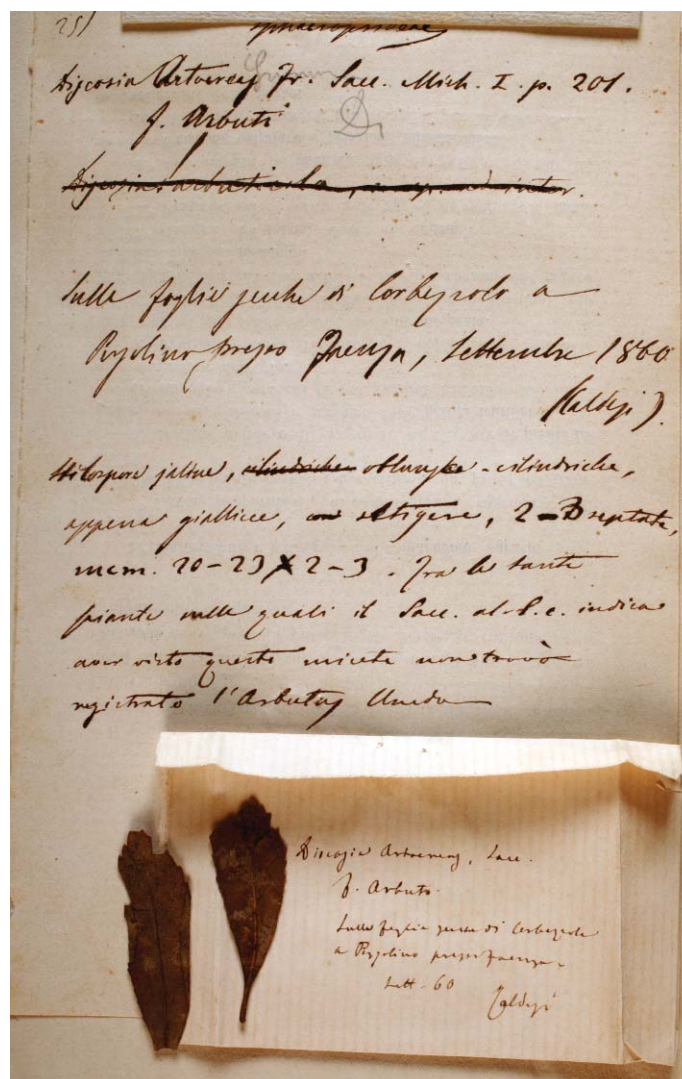 251
Sphaeropsideae
Discosia Artocreas Fr. Sacc. Mich. I. p. 201.
f. Arbuti
D
Discosia arbuticola,
Sulle foglie secche di Corbezzolo a
Pergolino presso Faenza, Settembre 1860
(Caldesi).
Stilospore jaline, cilindriche oblunghe-cilindriche,
appena giallicce, setigere, 2-3 septate,
mcm. 20-23 X 2-3. Fra le tante
piante sulle quali il Sacc. al. l. c. indica
aver visto questo micete non trovò
registrato l'Arbutus Unedo
Discosia Artocreas, Sacc.
f. Arbuti
Sulle foglie secche di Corbezzolo
a Pergolino presso Faenza
Sett. 60
Caldesi